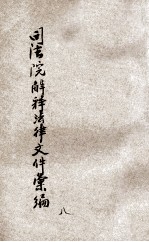 司法院解释法律文件汇编
八